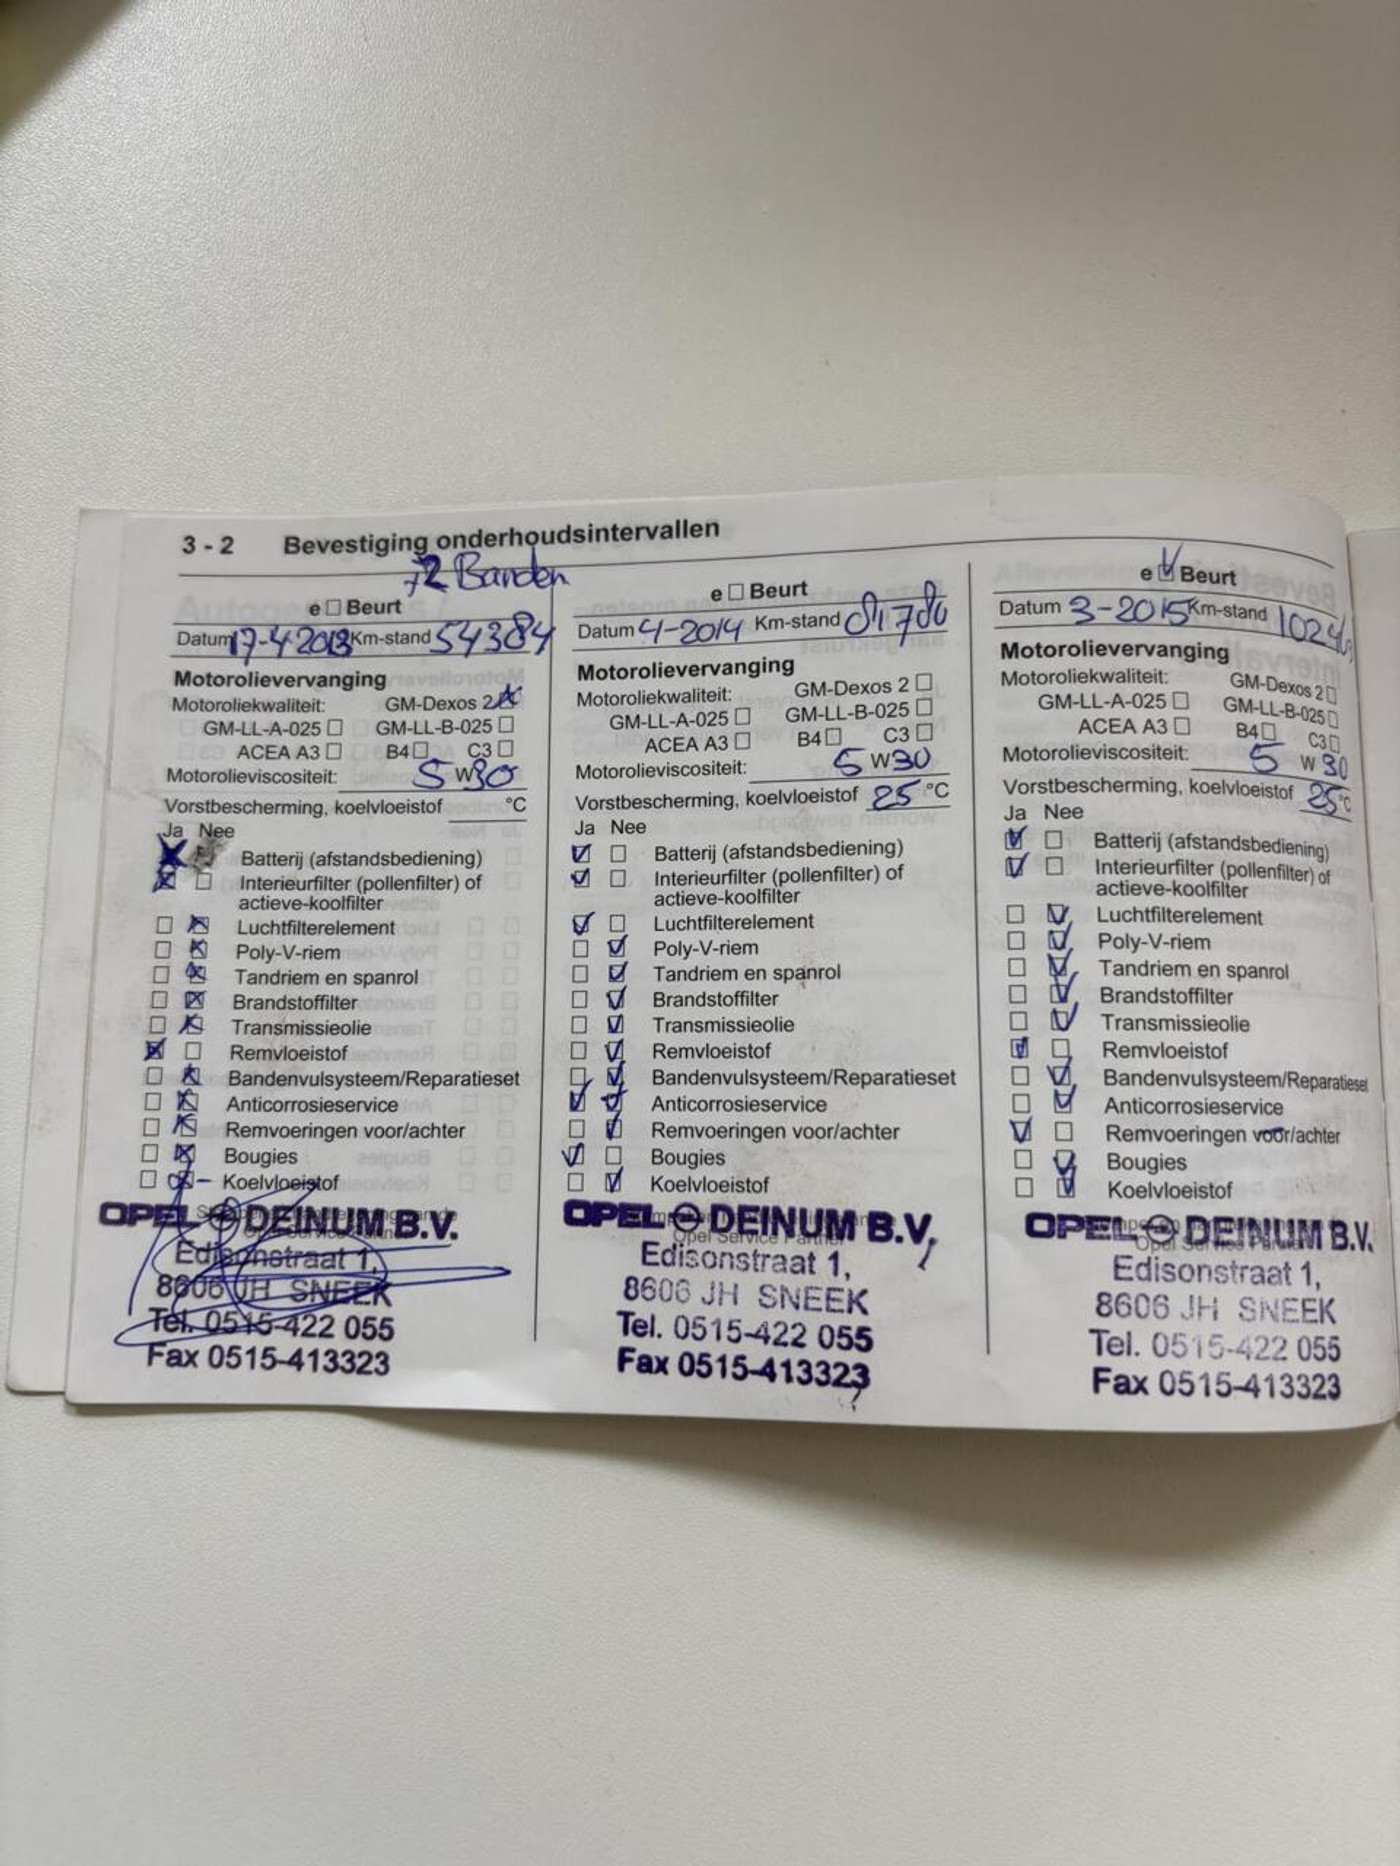 3 - 2 Bevestiging onderhoudsintervallen
+2 Banden
e ☐ Beurt
Datum 17-4-2013 Km-stand 54384
Motorolievervanging
Motoroliekwaliteit: GM-Dexos 2 ☒
GM-LL-A-025 ☐ GM-LL-B-025 ☐
ACEA A3 ☐ B4 ☐ C3 ☐
Motorolieviscositeit: 5 W 30
Vorstbescherming, koelvloeistof °C
Ja Nee
☒ ☐ Batterij (afstandsbediening)
☒ ☐ Interieurfilter (pollenfilter) of
actieve-koolfilter
☐ ☒ Luchtfilterelement
☐ ☒ Poly-V-riem
☐ ☒ Tandriem en spanrol
☐ ☒ Brandstoffilter
☐ ☒ Transmissieolie
☒ ☐ Remvloeistof
☐ ☒ Bandenvulsysteem/Reparatieset
☐ ☒ Anticorrosieservice
☐ ☒ Remvoeringen voor/achter
☐ ☒ Bougies
☐ ☒ Koelvloeistof
OPEL DEINUM B.V.
Edisonstraat 1,
8606 JH SNEEK
Tel. 0515-422 055
Fax 0515-413323
e ☐ Beurt
Datum 4-2014 Km-stand 81780
Motorolievervanging
Motoroliekwaliteit: GM-Dexos 2 ☐
GM-LL-A-025 ☐ GM-LL-B-025 ☐
ACEA A3 ☐ B4 ☐ C3 ☐
Motorolieviscositeit: 5 W 30
Vorstbescherming, koelvloeistof 25 °C
Ja Nee
☑ ☐ Batterij (afstandsbediening)
☑ ☐ Interieurfilter (pollenfilter) of
actieve-koolfilter
☑ ☐ Luchtfilterelement
☐ ☑ Poly-V-riem
☐ ☑ Tandriem en spanrol
☐ ☑ Brandstoffilter
☐ ☑ Transmissieolie
☐ ☑ Remvloeistof
☐ ☑ Bandenvulsysteem/Reparatieset
☑ ☑ Anticorrosieservice
☐ ☑ Remvoeringen voor/achter
☑ ☐ Bougies
☐ ☑ Koelvloeistof
OPEL DEINUM B.V.
Opel Service Partner
Edisonstraat 1,
8606 JH SNEEK
Tel. 0515-422 055
Fax 0515-413323
e ☑ Beurt
Datum 3-2015 Km-stand
Motorolievervanging
Motoroliekwaliteit: GM-Dexos 2 ☐
GM-LL-A-025 ☐ GM-LL-B-025 ☐
ACEA A3 ☐ B4 ☐ C3 ☐
Motorolieviscositeit: 5 W 30
Vorstbescherming, koelvloeistof 25 °C
Ja Nee
☑ ☐ Batterij (afstandsbediening)
☑ ☐ Interieurfilter (pollenfilter) of
actieve-koolfilter
☐ ☑ Luchtfilterelement
☐ ☑ Poly-V-riem
☐ ☑ Tandriem en spanrol
☐ ☑ Brandstoffilter
☐ ☑ Transmissieolie
☑ ☐ Remvloeistof
☐ ☑ Bandenvulsysteem/Reparatieset
☐ ☑ Anticorrosieservice
☑ ☐ Remvoeringen voor/achter
☐ ☑ Bougies
☐ ☑ Koelvloeistof
OPEL DEINUM B.V.
Opel Service Partner
Edisonstraat 1,
8606 JH SNEEK
Tel. 0515-422 055
Fax 0515-413323